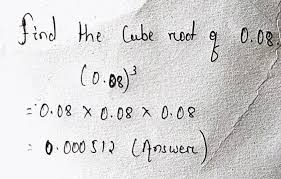 find the Cube root of 0.08.
(0.08)³
= 0.08 × 0.08 × 0.08
= 0.000512 (Answer)